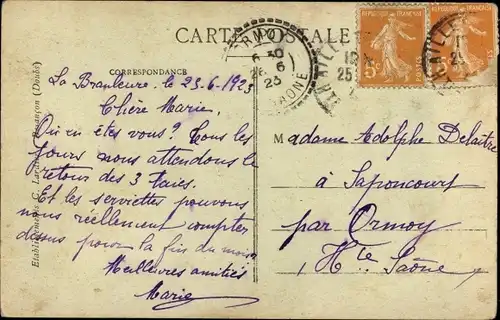 CARTE POSTALE
CORRESPONDANCE
RÉPUBLIQUE FRANÇAISE
5c
POSTES
ORMOY
26 6
23
SAONE
La 23.6.1923
Chère Marie.
Où en êtes vous? Tous les
jours nous attendons le
retour des 3 taies.
Et les serviettes pouvons
nous réellement compter
dessus pour la fin du mois
Meilleures amitiés
Marie
Madame Adolphe Delaitre
à Saponcourt
par Ormoy
Hte Saône
Etablissements C. Lardier, Besançon (Doubs)